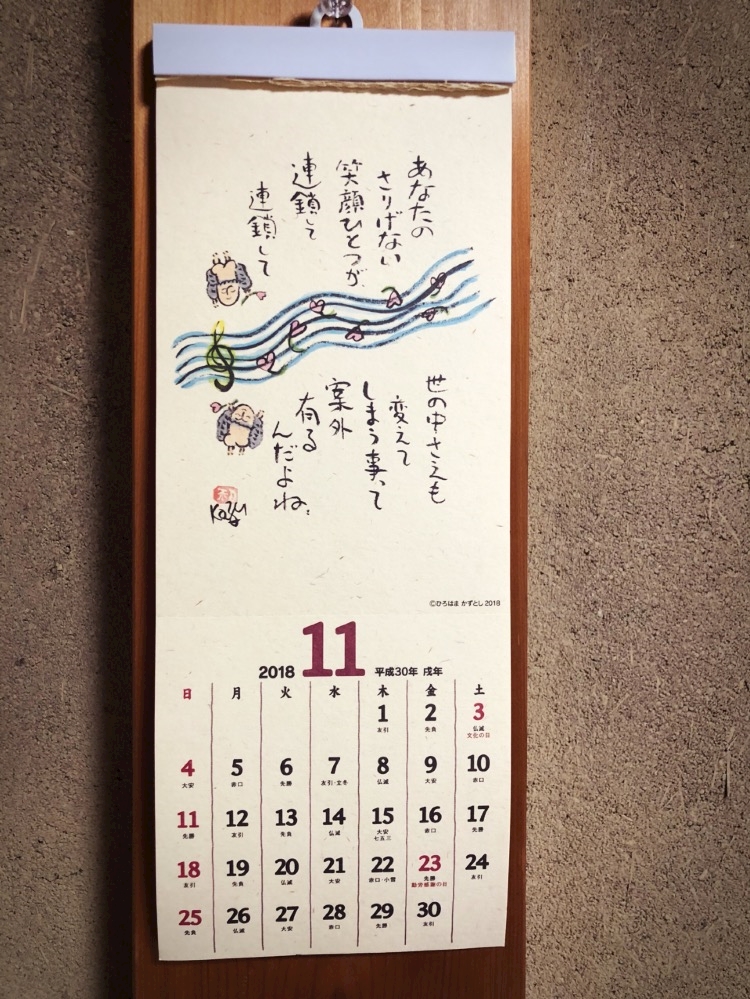 あなたの
さりげない
笑顔ひとつが
連鎖して
連鎖して
世の中さえも
変えて
しまう事って
案外
有る
んだよね。
Kazu
©ひろはま かずとし 2018
2018 11 平成30年 戌年
日 月 火 水 木 金 土
1 2 3
友引 先負 仏滅
文化の日
4 5 6 7 8 9 10
大安 赤口 先勝 友引・立冬 仏滅 大安 赤口
11 12 13 14 15 16 17
先勝 友引 先負 仏滅 大安 赤口 先勝
七五三
18 19 20 21 22 23 24
友引 先負 仏滅 大安 赤口・小雪 先勝 友引
勤労感謝の日
25 26 27 28 29 30
先負 仏滅 大安 赤口 先勝 友引